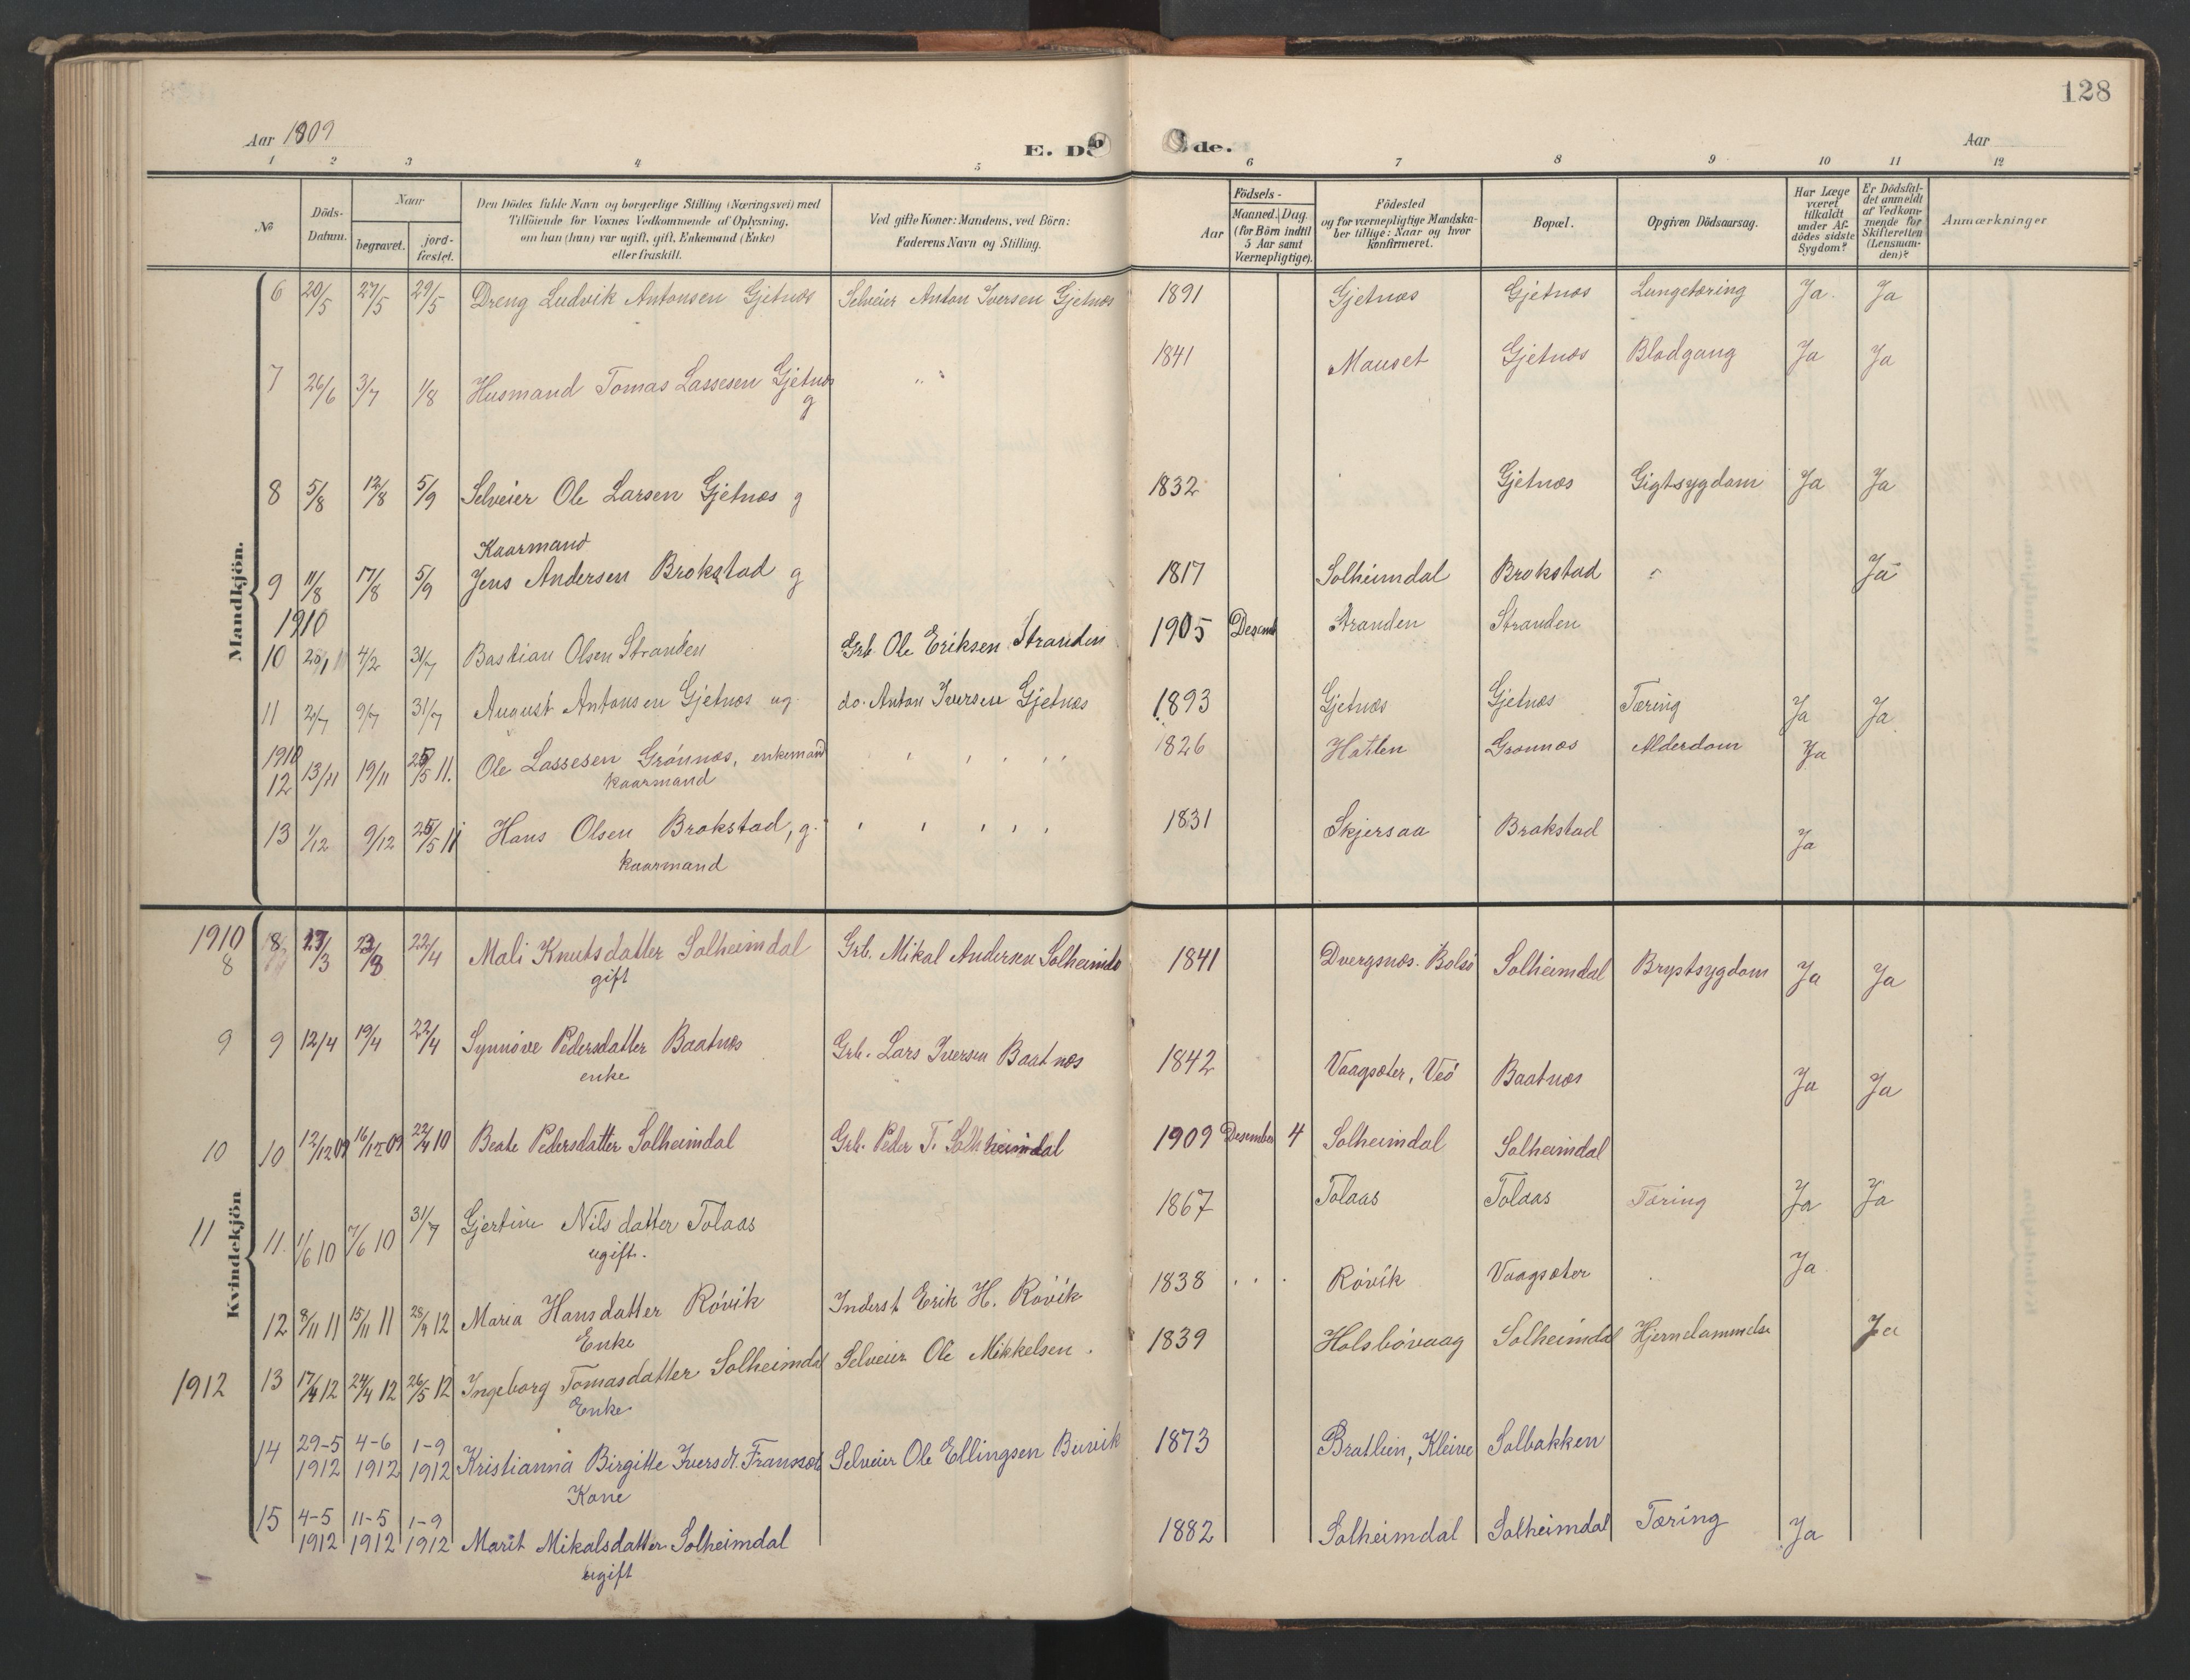 128
Aar 1809 E. Döde. Aar
1 2 3 4 5 6 7 8 9 10 11 12
№ Döds-Datum. Naar begravet. jord-fæstet. Den Dödes fulde Navn og borgerlige Stilling (Næringsvei) med Tilföiende for Voxnes Vedkommende af Oplysning, om han (hun) var ugift, gift, Enkemand (Enke) eller fraskilt. Ved gifte Koner: Mandens, ved Börn: Faderens Navn og Stilling. Födsels- Aar Maaned. Dag. (for Börn indtil 5 Aar samt Værnepligtige). Födested og for værnepligtige Mandskaber tillige: Naar og hvor konfirmeret. Bopæl. Opgiven Dödsaarsag. Har Læge været tilkaldt under Afdödes sidste Sygdom? Er Dödsfaldet anmeldt af Vedkommende for Skifteretten (Lensmanden)? Anmærkninger
Mandkjön.
6 20/5 27/5 29/5 Dreng Ludvik Antonsen Gjetnæs Selveier Anton Iversen Gjetnæs 1891 Gjetnæs Gjetnæs Lungetæring Ja. Ja
7 26/6 3/7 1/8 Husmand Tomas Lassesen Gjetnæs g " 1841 Mauset Gjetnæs Blodgang Ja Ja
8 5/8 12/8 5/9 Selveier Ole Larsen Gjetnæs g 1832 Gjetnæs Gigtsygdom Ja Ja
Kaarmand
9 11/8 17/8 5/9 Jens Andersen Brokstad g 1817 Solheimdal Brokstad " Ja
1910
10 4/2 31/7 Bastian Olsen Stranden Grb. Ole Eriksen Stranden 1905 Desemb Stranden Stranden
11 2/7 9/7 31/7 August Antonsen Gjetnæs ug do. Anton Iversen Gjetnæs 1893 Gjetnæs Gjetnæs Tæring Ja Ja
1910
12 13/11 19/11 25/5 11. Ole Lassesen Grönnæs, enkemand 1826 Hatlen Grønnæs Alderdom Ja
kaarmand
13 1/12 9/12 25/5 11 Hans Olsen Brokstad, g. 1831 Skjersaa Brokstad Ja
kaarmand
Kvindekjön
1910
8 8 17/3 23/3 22/4 Mali Knutsdatter Solheimdal Grb. Mikal Andersen Solheimda 1841 Dvergsnæs. Bolsö Solheimdal Brystsygdom Ja Ja
gift
9 9 12/4 19/4 22/4 Synnöve Pedersdatter Baatnæs Grb. Lars Iversen Baatnæs 1842 Vaagsæter, Veö Baatnæs Ja Ja
enke
10 10 12/12 09 16/12 09 22/4 10 Beate Pedersdatter Solheimdal Grb. Peder T. Solheimdal 1909 Desember 4 Solheimdal Solheimdal
11 11. 1/6 10 7/6 10 31/7 Gjertine Nilsdatter Tolaas 1867 Tolaas Tolaas Tæring Ja Ja
ugift.
12 8/11 11 15/11 11 28/4 12 Maria Hansdatter Rövik Inderst Erik H. Rövik 1838 Rövik Vaagsæter Ja
Enke
1912 13 17/4 12 24/4 12 26/5 12 Ingeborg Tomasdatter Solheimdal Selveier Ole Mikkelsen. 1839 Holsbövaag Solheimdal Hjernelammelse Ja
Enke
14 29-5 1912 4-6 1912 1-9 1912 Kristianna Birgitte Iversdt. Selveier Ole Ellingsen Buvik 1873 Bratlien, Kleive Solbakken
Kone
15 4-5 1912 11-5 1912 1-9 1912 Marit Mikalsdatter Solheimdal 1882 Solheimdal Solheimdal Tæring Ja
ugift